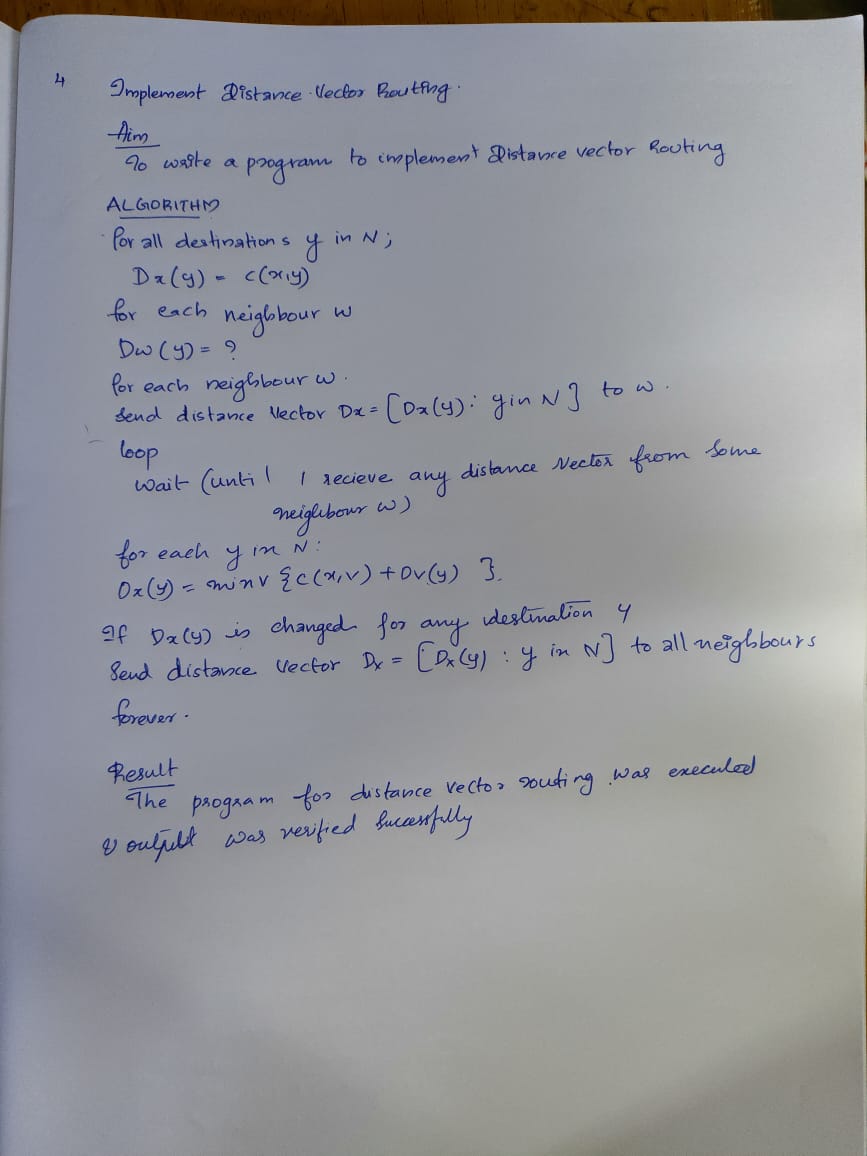 4
Implement Distance Vector Routing.
Aim
To write a program to implement Distance vector Routing
ALGORITHM
for all destinations y in N;
Dx(y) = c(x,y)
for each neighbour w
Dw(y) = ?
for each neighbour w.
Send distance Vector Dx = [Dx(y): y in N] to w.
loop
wait (until I recieve any distance Vector from some
neighbour w)
for each y in N:
Dx(y) = minv {c(x,v) + Dv(y) }.
If Dx(y) is changed for any destination y
Send distance Vector Dx = [Dx(y) : y in N] to all neighbours
forever.
Result
The program for distance vector routing was executed
& output was verified Sucessfully